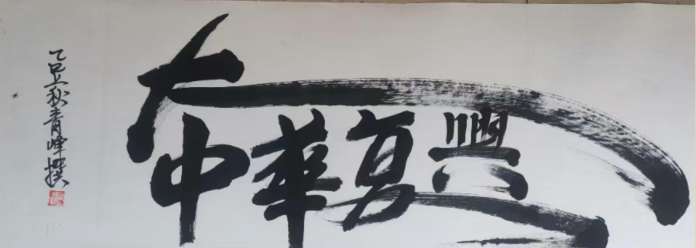 大
中華复興
乙巳立秋青峰撰